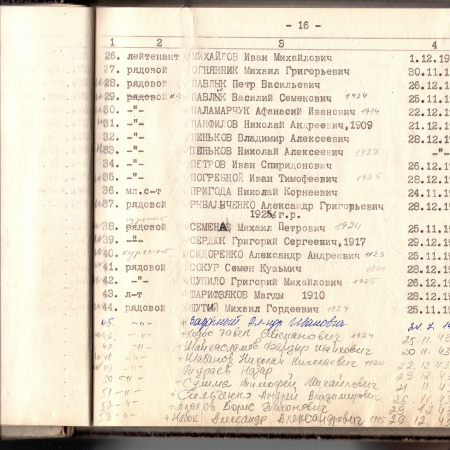 - 16 -
1 2 3 4
26. лейтенант МИХАЙЛОВ Иван Михайлович 1.12.19
27. рядовой ОГНЯННИК Михаил Григорьевич 30.11.1
28. рядовой ПАВЛЮК Петр Васильевич 26.12.1
29. рядовой ПАВЛЮК Василий Семенович 1924 25.11.1
30. -"- ПАЛАМАРЧУК Афанасий Иванович 1914 22.12.1
31. -"- ПАНФИЛОВ Николай Андреевич,1909 21.12.1
32. рядовой ПЕНЬКОВ Владимир Алексеевич 28.12.1
33. -"- ПЕНЬКОВ Николай Алексеевич 1922 -"-
34. -"- ПЕТРОВ Иван Спиридонович 26.12.1
35. -"- ПОГРЕБНОЙ Иван Тимофеевич 1925 28.12.1
36. мл.с-т ПРИГОДА Николай Корнеевич 24.11.1
37. рядовой Александр Григорьевич 28.12.1
1925 г.р.
38. рядовой Михаил Петрович 1924 25.11.1
39. -"- СЕРДЮК Григорий Сергеевич,1917 29.12.1
40. СИДОРЕНКО Александр Андреевич 1923 25.11.1
41. рядовой СОКУР Семен Кузьмич 28.12.1
42. -"- ЦУПИЛО Григорий Михайлович 1925 26.12.1
43. л-т ШАРИФЗЯКОВ Магды 1910 28.12.1
44. рядовой ШУТИЙ Михаил Гордеевич 1924 25.11.1
45. -"- Иванович
-"- Павел Степанович 1924 25.11.43
-"- 20.11.43
-"- + Шабанов Николай Николаевич 1920 22.12.43
-"- + Тураев Назар
50 -"- + Сумма Тимофей Михайлович
51 -"- + Андрей Владимирович
52 -"- + Борис
53 -"- + Новак Александр Александрович 1915